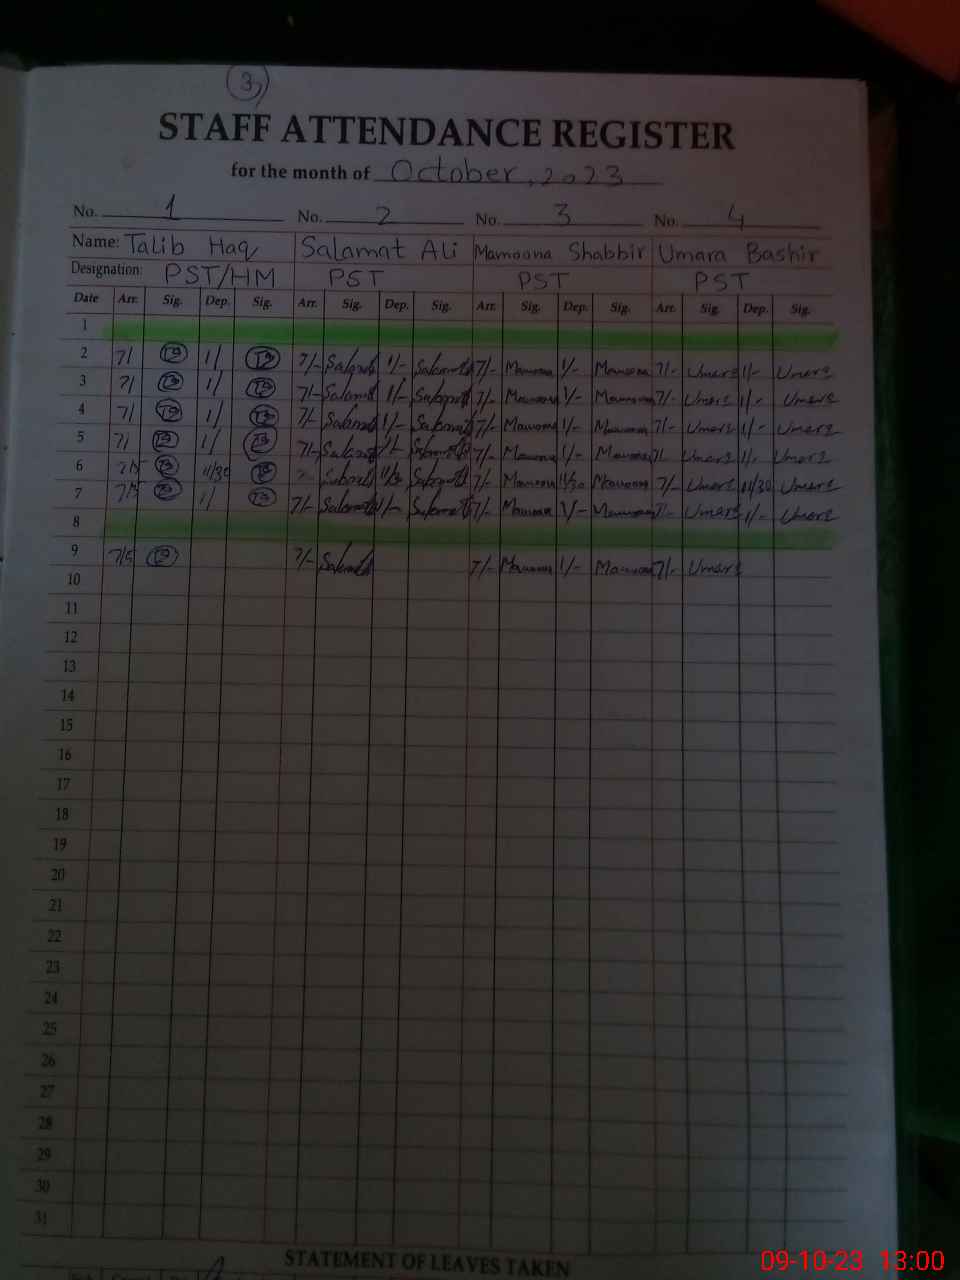 3
STAFF ATTENDANCE REGISTER
for the month of October, 2023
No. 1 No. 2 No. 3 No. 4
Name: Talib Haq Salamat Ali Mamoona Shabbir Umara Bashir
Designation: PST/HM PST PST PST
Date Arr. Sig. Dep. Sig. Arr. Sig. Dep. Sig. Arr. Sig. Dep. Sig. Arr. Sig. Dep. Sig.
1
2 7/ 1/ 7/- Salamat 1/- Salamat 7/- Mamoona 1/- Mamoona 7/- Umara 1/- Umara
3 7/ 1/ 7/- Salamat 1/- Salamat 7/- Mamoona 1/- Mamoona 7/- Umara 1/- Umara
4 7/ 1/ 7/- Salamat 1/- Salamat 7/- Mamoona 1/- Mamoona 7/- Umara 1/- Umara
5 7/ 1/ 7/- Salamat 1/- Salamat 7/- Mamoona 1/- Mamoona 7/ Umara 1/- Umara
6 7/5 11/30 Salamat Salamat 7/- Mamoona 11/30 Mamoona 7/- Umara 11/30 Umara
7 7/5 1/ 7/- Salamat 1/- Salamat 7/- Mamoona 1/- Mamoona 7/- Umara 1/- Umara
8
9 7/5 7/- Salamat 7/- Mamoona 1/- Mamoona 7/- Umara
10
11
12
13
14
15
16
17
18
19
20
21
22
23
24
25
26
27
28
29
30
31
STATEMENT OF LEAVES TAKEN
09-10-23 13:00